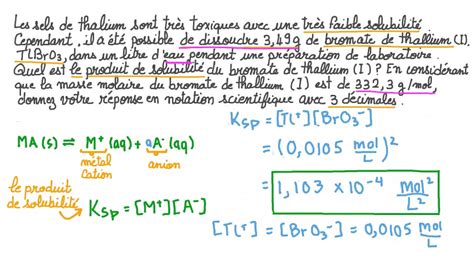 Les sels de thalium sont très toxiques avec une très faible solubilité.
Cependant, il a été possible de dissoudre 3,49 g de bromate de thallium (I).
TlBrO₃, dans un litre d'eau pendant une préparation de laboratoire.
Quel est le produit de solubilité du bromate de thallium (I) ? En considérant
que la masse molaire du bromate de thallium (I) est de 332,3 g/mol,
donnez votre réponse en notation scientifique avec 3 décimales.
Ksp = [Tl⁺][BrO₃⁻]
MA (s) ⇌ M⁺(aq) + A⁻(aq)
= (0,0105 mol/L)²
métal anion
cation
= 1,103 × 10⁻⁴ mol²/L²
le produit
de solubilité
Ksp = [M⁺][A⁻]
[Tl⁺] = [BrO₃⁻] = 0,0105 mol/L